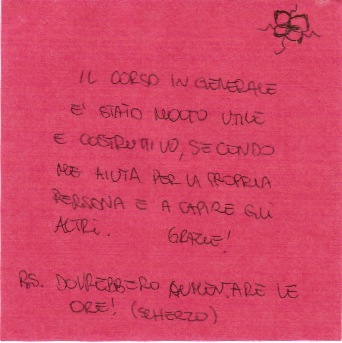 IL CORSO IN GENERALE
E' STATO MOLTO UTILE
E COSTRUTTIVO, SECONDO
ME AIUTA PER LA PROPRIA
PERSONA E A CAPIRE GLI
ALTRI. GRAZIE!
P.S. DOVREBBERO AUMENTARE LE
ORE! (SCHERZO)